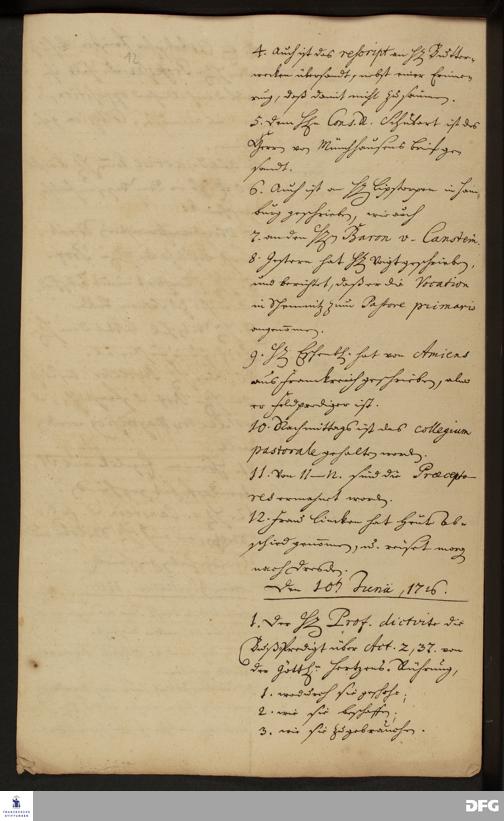 12
4. Auch ist das rescript an H. Butter-
wecken übersandt, nebst einer Erinne-
rung, daß damit nicht zu säumen.
5. Dem H. Cons. R. Schubart ist des
Herrn von Münchhausens brief ge-
sandt.
6. Auch ist an H. Lipstorpen in Ham-
burg geschrieben, wie auch
7. an den H. Baron v. Canstein.
8. Gestern hat H. Voigt geschrieben,
und berichtet, daß er die Vocation
in Schemnitz zum Pastore primario
angenommen.
9. H. hat von Amiens
aus Franckreich geschrieben, alwo
er Feldprediger ist.
10. Nachmittags ist das collegium
pastorale gehalten worden.
11. Von 11–12. sind die Præcepto-
res ermahnet worden.
12. Frau Lincken hat heut Ab-
schied genommen, u. reiset morg
nach Dresden.
Den 10t Junii, 1716.
1. Der H. Prof. dictirte die
Bußpredigt über Act. 2, 37. von
der Göttl. Hertzens-Rührung,
1. wodurch sie geschehe;
2. wie sie beschaffen;
3. wie sie zu gebrauchen.
FRANCKESCHE
STIFTUNGEN
DFG